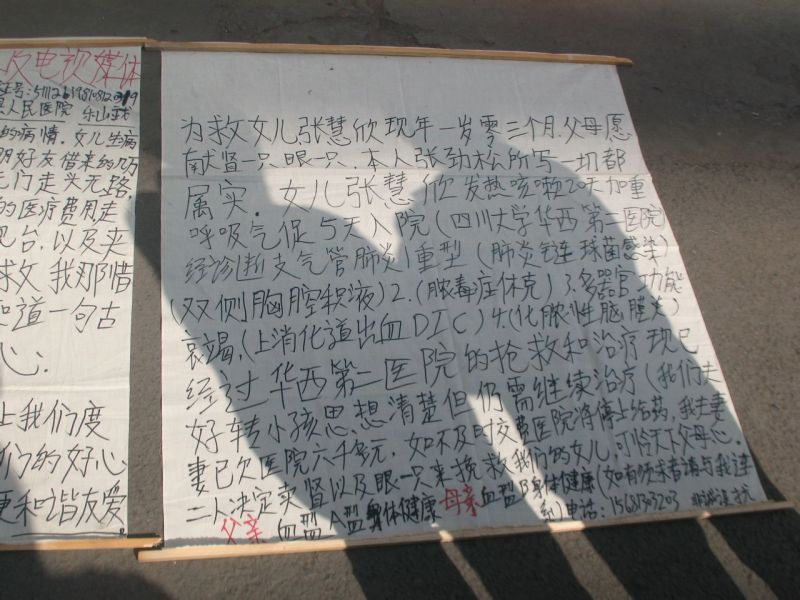 电视媒体
人民医院 乐山
的病情,女儿生病
朋好友借来的几万
无门走头无路
的医疗费用走
台,以及夹
救 我那惜
知道一句古
心:
上我们度
们的好心
更和谐友爱
为救女儿张慧欣现年一岁零三个月.父母愿
献肾一只眼一只.本人张劲松所写一切都
属实.女儿张慧欣发热咳嗽20天加重
呼吸气促5天入院(四川大学华西第二医院)
经诊断支气管肺炎1重型(肺炎链球菌感染)
(双侧胸腔积液)2.(脓毒症休克)3.多器官功能
衰竭,(上消化道出血DIC)4.(化脓性脑膜炎)
经过华西第二医院的抢救和治疗现已
好转小孩思想清楚但仍需继续治疗(我们夫
妻已欠医院六千多元,如不及时交费医院将停止给药,我夫妻
二人决定卖肾以及眼一只来挽救我们的女儿,可怜天下父母心.
父亲血型A型身体健康母亲血型B身体健康(如有须求者请与我连
纪电话:15681303203 非诚误扰